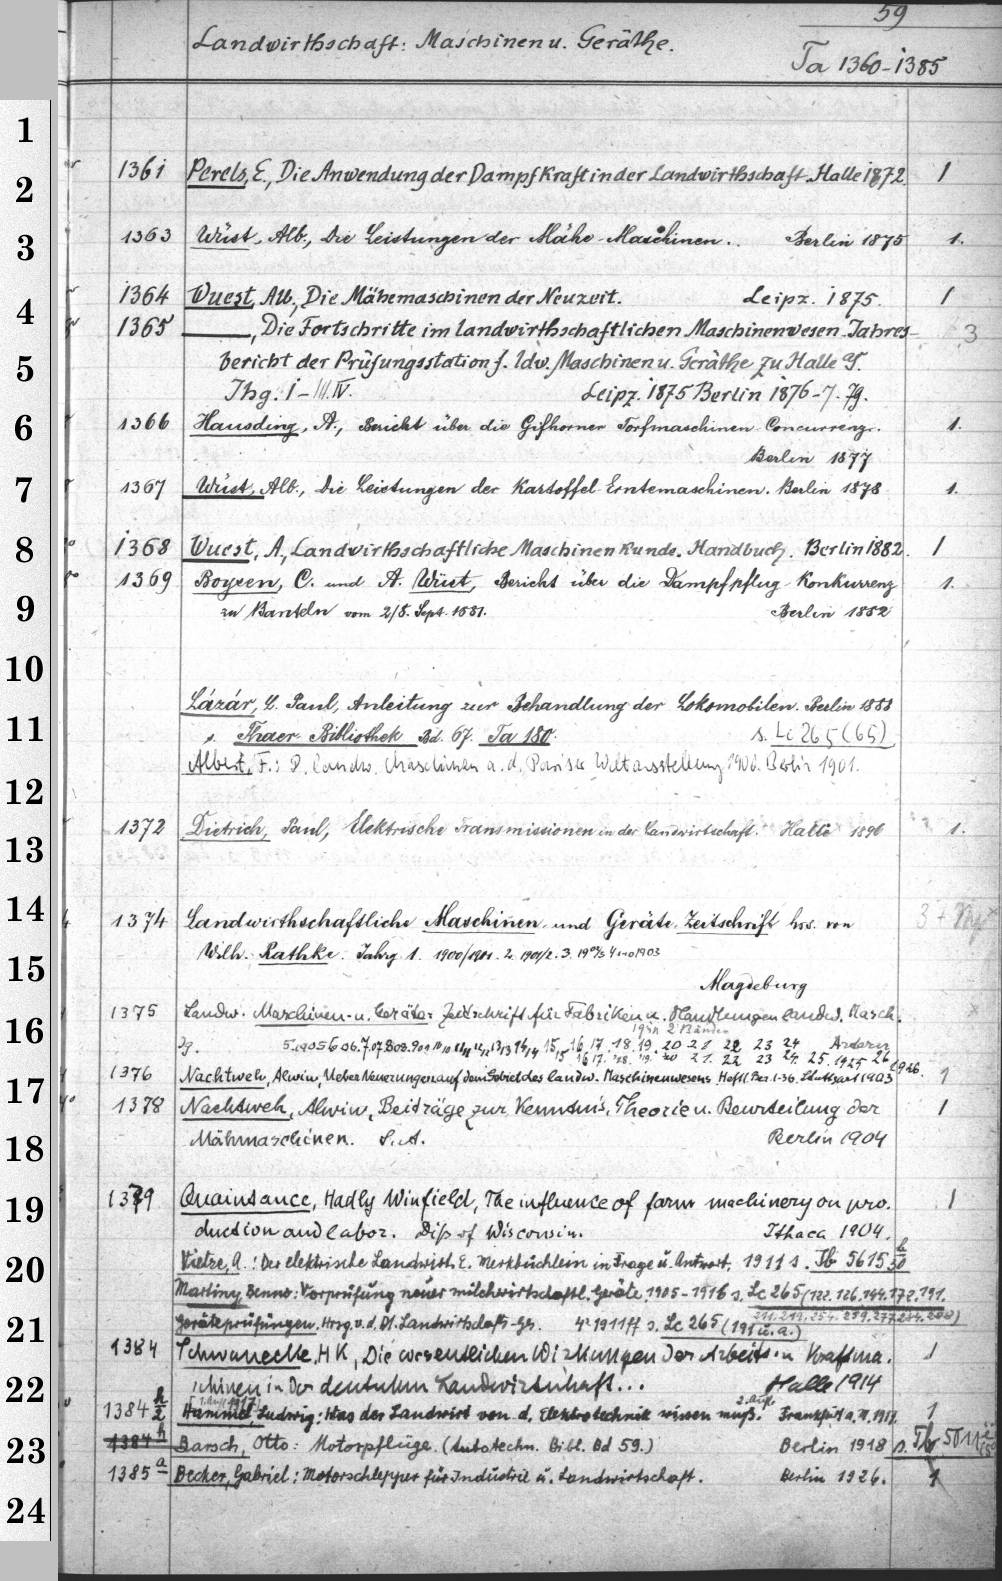 59
Landwirthschaft: Maschinen u. Geräthe.
Ta 1360-1385
1
2
3
4
5
6
7
8
9
10
11
12
13
14
15
16
17
18
19
20
21
22
23
24
1361 Perels, E., Die Anwendung der Dampfkraft in der Landwirthschaft. Halle 1872. 1
1363 Wüst, Alb., Die Leistungen der Mähe-Maschinen. Berlin 1875 1.
1364 Wuest, Alb., Die Mähemaschinen der Neuzeit. Leipz. 1875. 1
1365 ———, Die Fortschritte im landwirthschaftlichen Maschinenwesen. Jahres- 3
bericht der Prüfungsstation f. ldw. Maschinen u. Geräthe zu Halle
Jhg. I-III.IV. Leipz. 1875 Berlin 1876-7. Jg.
1366 Hausding, A., Bericht über die Gifhorner Torfmaschinen-Concurrenz. 1.
Berlin 1877
1367 Wüst, Alb., Die Leistungen der Kartoffel-Erntemaschinen. Berlin 1878 1.
1368 Wuest, A., Landwirthschaftliche Maschinenkunde. Handbuch. Berlin 1882. 1
1369 Boysen, C. und A. Wüst, Bericht über die Dampfpflug-Konkurrenz 1.
zu Banteln vom 2/8. Sept. 1881. Berlin 1882
Lázár, L. Paul, Anleitung zur Behandlung der Lokomobilen. Berlin 1888
s. Thaer-Bibliothek Bd. 67. Ta 180. s. Lc 265 (65)
Albert, F.: D. landw. Maschinen a. d. Pariser Weltausstellung 1900. Berlin 1901.
1372 Dietrich, Paul, Elektrische Transmissionen in der Landwirtschaft. Halle 1896 1.
1374 Landwirthschaftliche Maschinen- und Geräte-Zeitschrift hrs. von 3+
Wilh. Rathke. Jahrg. 1. 1900/1901. 2. 1901/2. 3. 1902/3 4 1903
Magdeburg
1375 Landw. Maschinen- u. Geräte-Zeitschrift für Fabriken u. Handlungen landw. Masch.
19 in 2 Bänden
Jg. 5.1905 6 06. 7.07 8 08. 9 09 10 10 11 11 12 12 13 13 14 14 15 16 17 18 19 20 21 22 23 24 Artern
15 16 17. 18. 19. 20 21. 22 23 24. 25. 1925 26 1926.
1376 Nachtweh, Alwin, Ueber Neuerungen auf dem Gebiet des landw. Maschinenwesens Heft 1. Ber. 1-36. Stuttgart 1903 1
1378 Nachtweh, Alwin, Beiträge zur Kenntnis, Theorie u. Beurteilung der 1
Mähmaschinen. S.A. Berlin 1904
1379 Quaintance, Hadly Winfield, The influence of farm machinery on pro- 1
duction and labor. Diss of Wisconsin. Ithaca 1904.
Vietze, A.: Der elektrische Landwirt. E. Merkbüchlein in Frage u. Antwort. 1911 s. Tb 5615 h/50
Martiny, Benno: Vorprüfung neuer milchwirtschaftl. Geräte. 1905-1916 s. Lc 265 (122. 126. 144. 172. 191.
211. 212. 254. 259. 277. 284. 288)
Geräteprüfungen. Hrsg. v. d. Dt. Landwirtschafts-Ges. 4° 1911 ff s. Lc 265 (191 u.a.)
1384 Schwanecke, H K, Die wesentlichen Wirkungen der Arbeits- u Kraftma- 1
schinen in der deutschen Landwirtschaft... Halle 1914
1384 h/2 Hammel, Ludwig: Was der Landwirt von d. Elektrotechnik wissen muß. 2. Aufl. Frankfurt a. M. 1917. 1
1384 h Barsch, Otto: Motorpflüge. (Autotechn. Bibl. Bd 59.) Berlin 1918 s. Tb
1385 a Becker, Gabriel: Motorschlepper für Industrie u. Landwirtschaft. Berlin 1926. 1